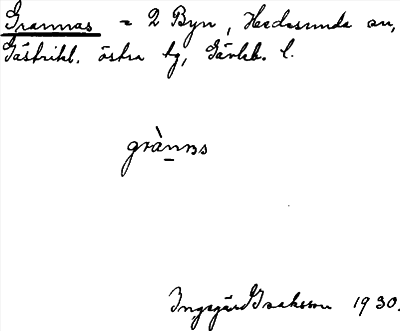 Grannas = 2 Byn, Hedesunda sn,
Gästrikl. östra tg, Gävleb. l.
grànns
Ingegärd Isaksson 1930.